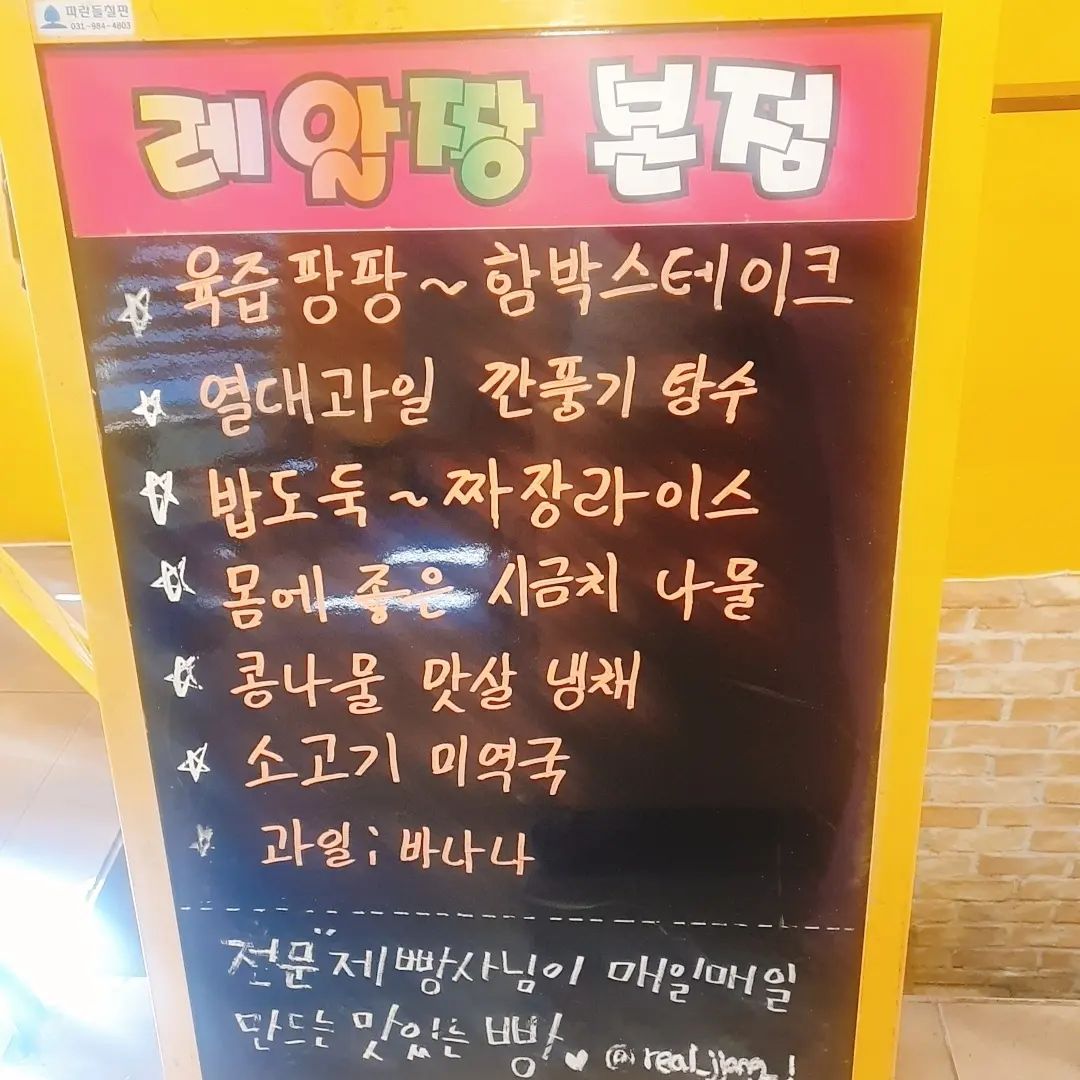 파란들칠판
031-984-4803
레알짱 본점
육즙 팡팡~함박스테이크
열대과일 깐풍기 탕수
밥도둑~짜장라이스
몸에 좋은 시금치 나물
콩나물 맛살 냉채
소고기 미역국
과일; 바나나
전문 제빵사님이 매일매일
만드는 맛있는 빵